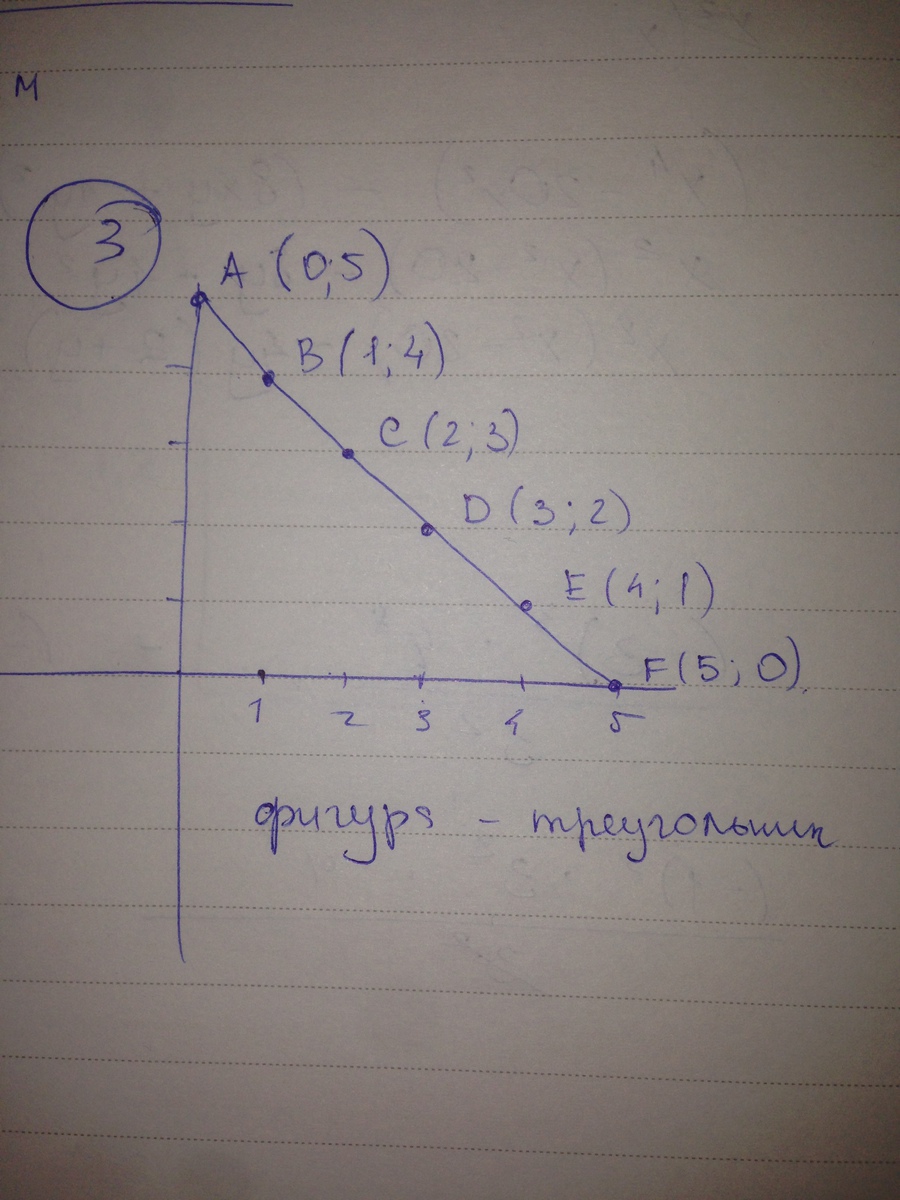 м
3
A (0;5)
B (1;4)
C (2;3)
D (3;2)
E (4;1)
F (5;0)
1 2 3 4 5
фигура - треугольник